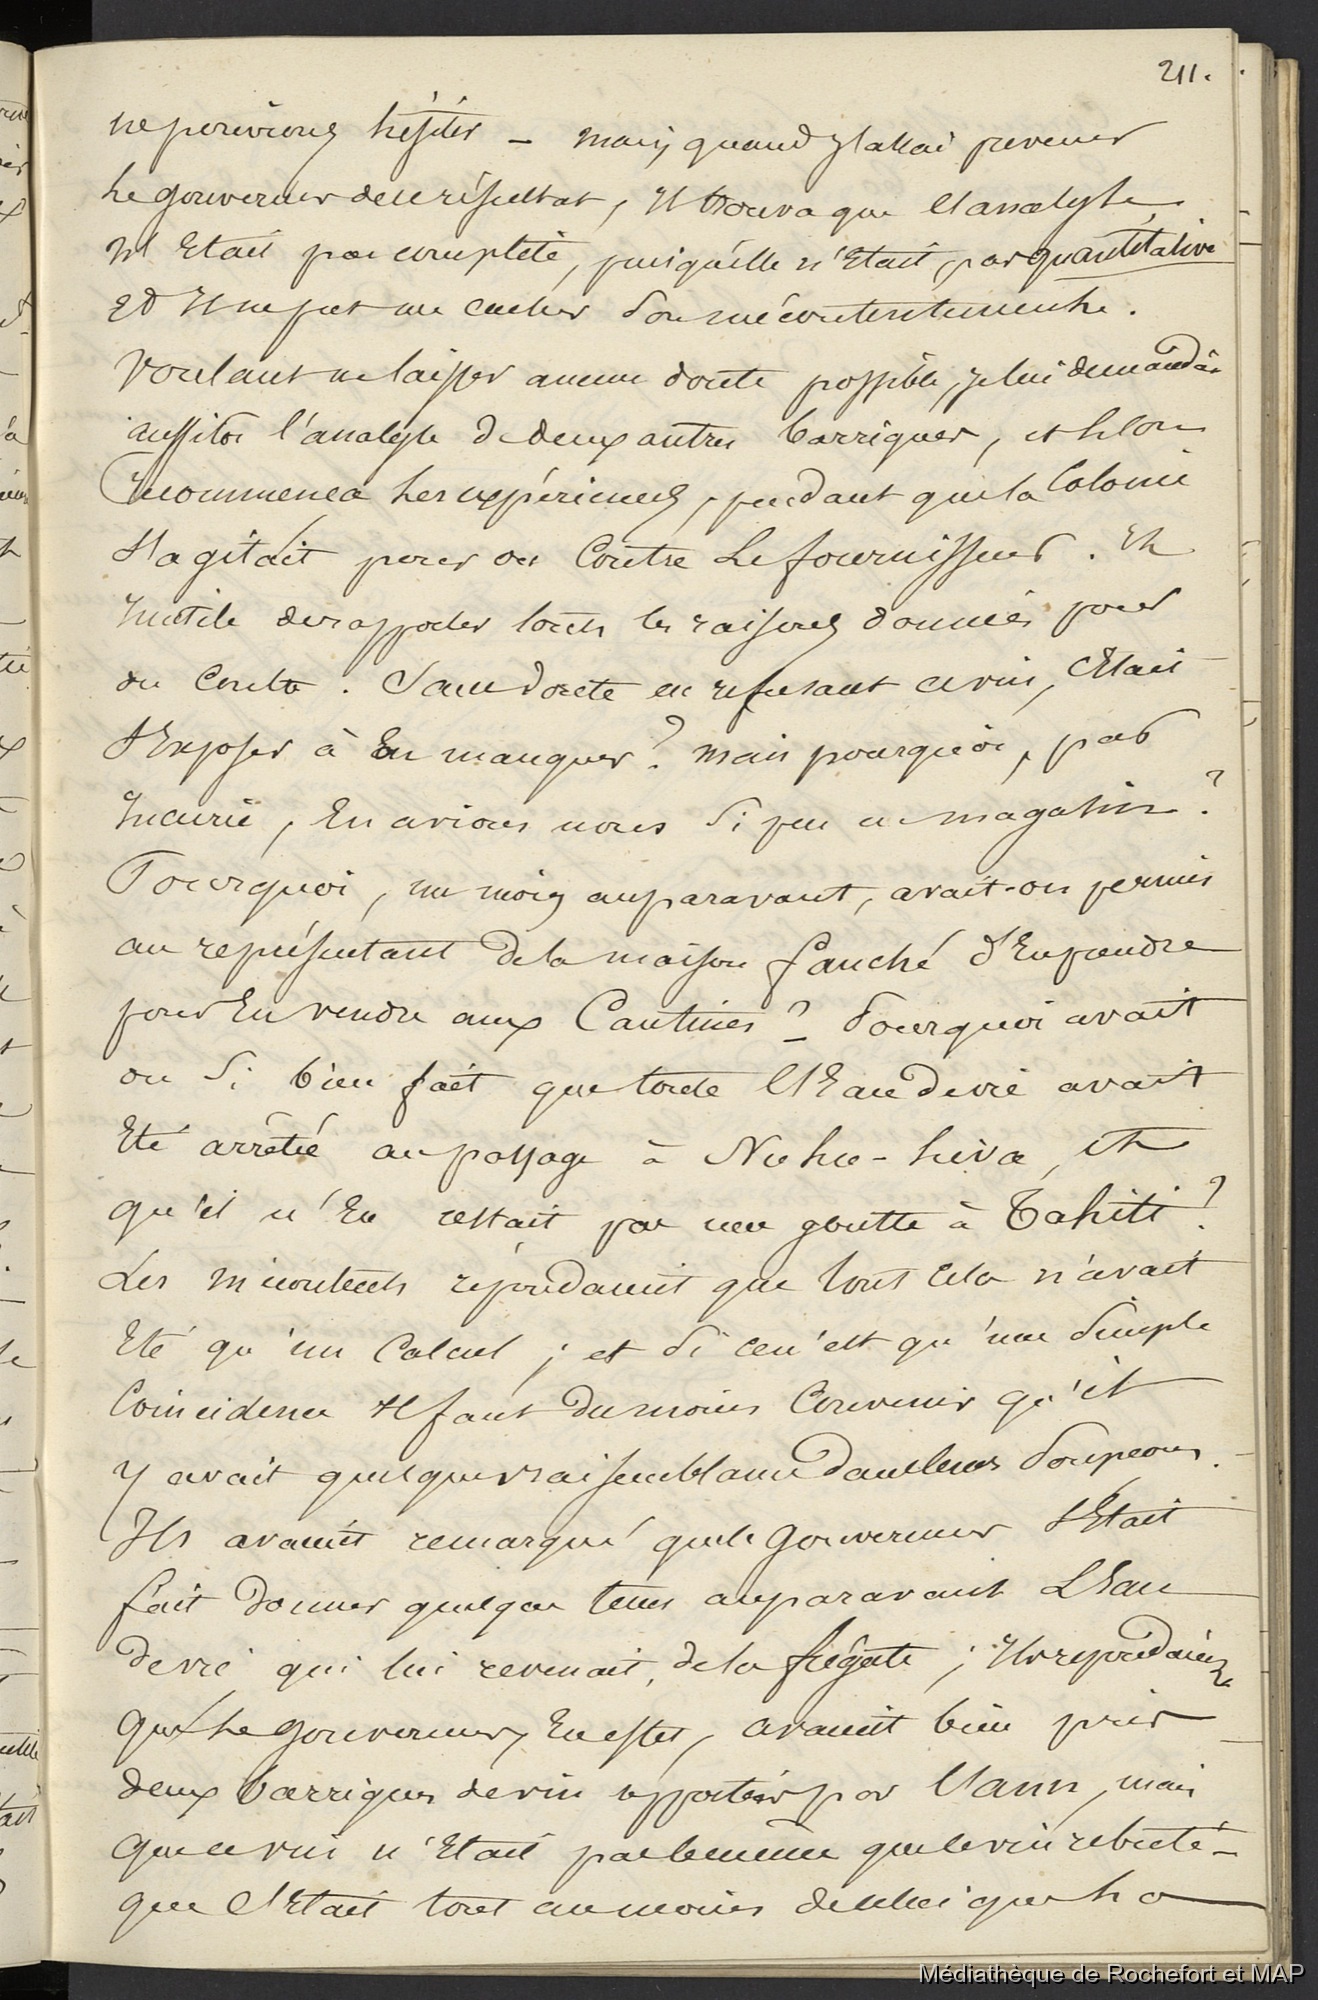 211.
ne pouvions hésiter – mais quand j'allai prevenir
le gouverneur de ce résultat, il trouva que l'analyse
n'était pas complète, puisqu'elle n'était pas quantitative
et il ne put me cacher son mécontentement.
Voulant ne laisser aucun doute possible, je lui demandai
aussitot l'analyse de deux autres barriques, et l'on
recommença les expériences, pendant que la Colonie
s'agitait pour ou Contre le fournisseur. Il est
inutile de rapporter toutes les raisons données pour
ou Contre. Sans doute en refusant ce vin, C'était
s'exposer à en manquer? mais pourquoi, par
incurie, en avions nous si peu en magasin?
Pourquoi, un mois auparavant, avait-on permis
au représentant de la maison fauché d'en prendre
pour en vendre aux Cantines? Pourquoi avait
on si bien fait que toute l'Eau de vie avait
Eté arrêtée au passage à Nu-hu-hiva, et
qu'il n'en restait pas une goutte à Tahiti?
Les mécontents répondaient que tout Cela n'avait
Eté qu'un Calcul; et si ce n'est qu'une simple
Coincidence il faut du moins Convenir qu'il
y avait quelque vraisemblance dans leurs soupçons.
Ils avaient remarqué que le gouverneur s'Etait
fait donner quelque tems auparavant L'Eau
de vie qui lui revenait de la frégate; Ils repondaient
que le gouverneur, en effet, avait bien pris
deux barriques de vin apportées par l'ann, mais
que ce vin n'Etait pas le même que le vin rebuté –
que C'Etait tout au moins de celui que la